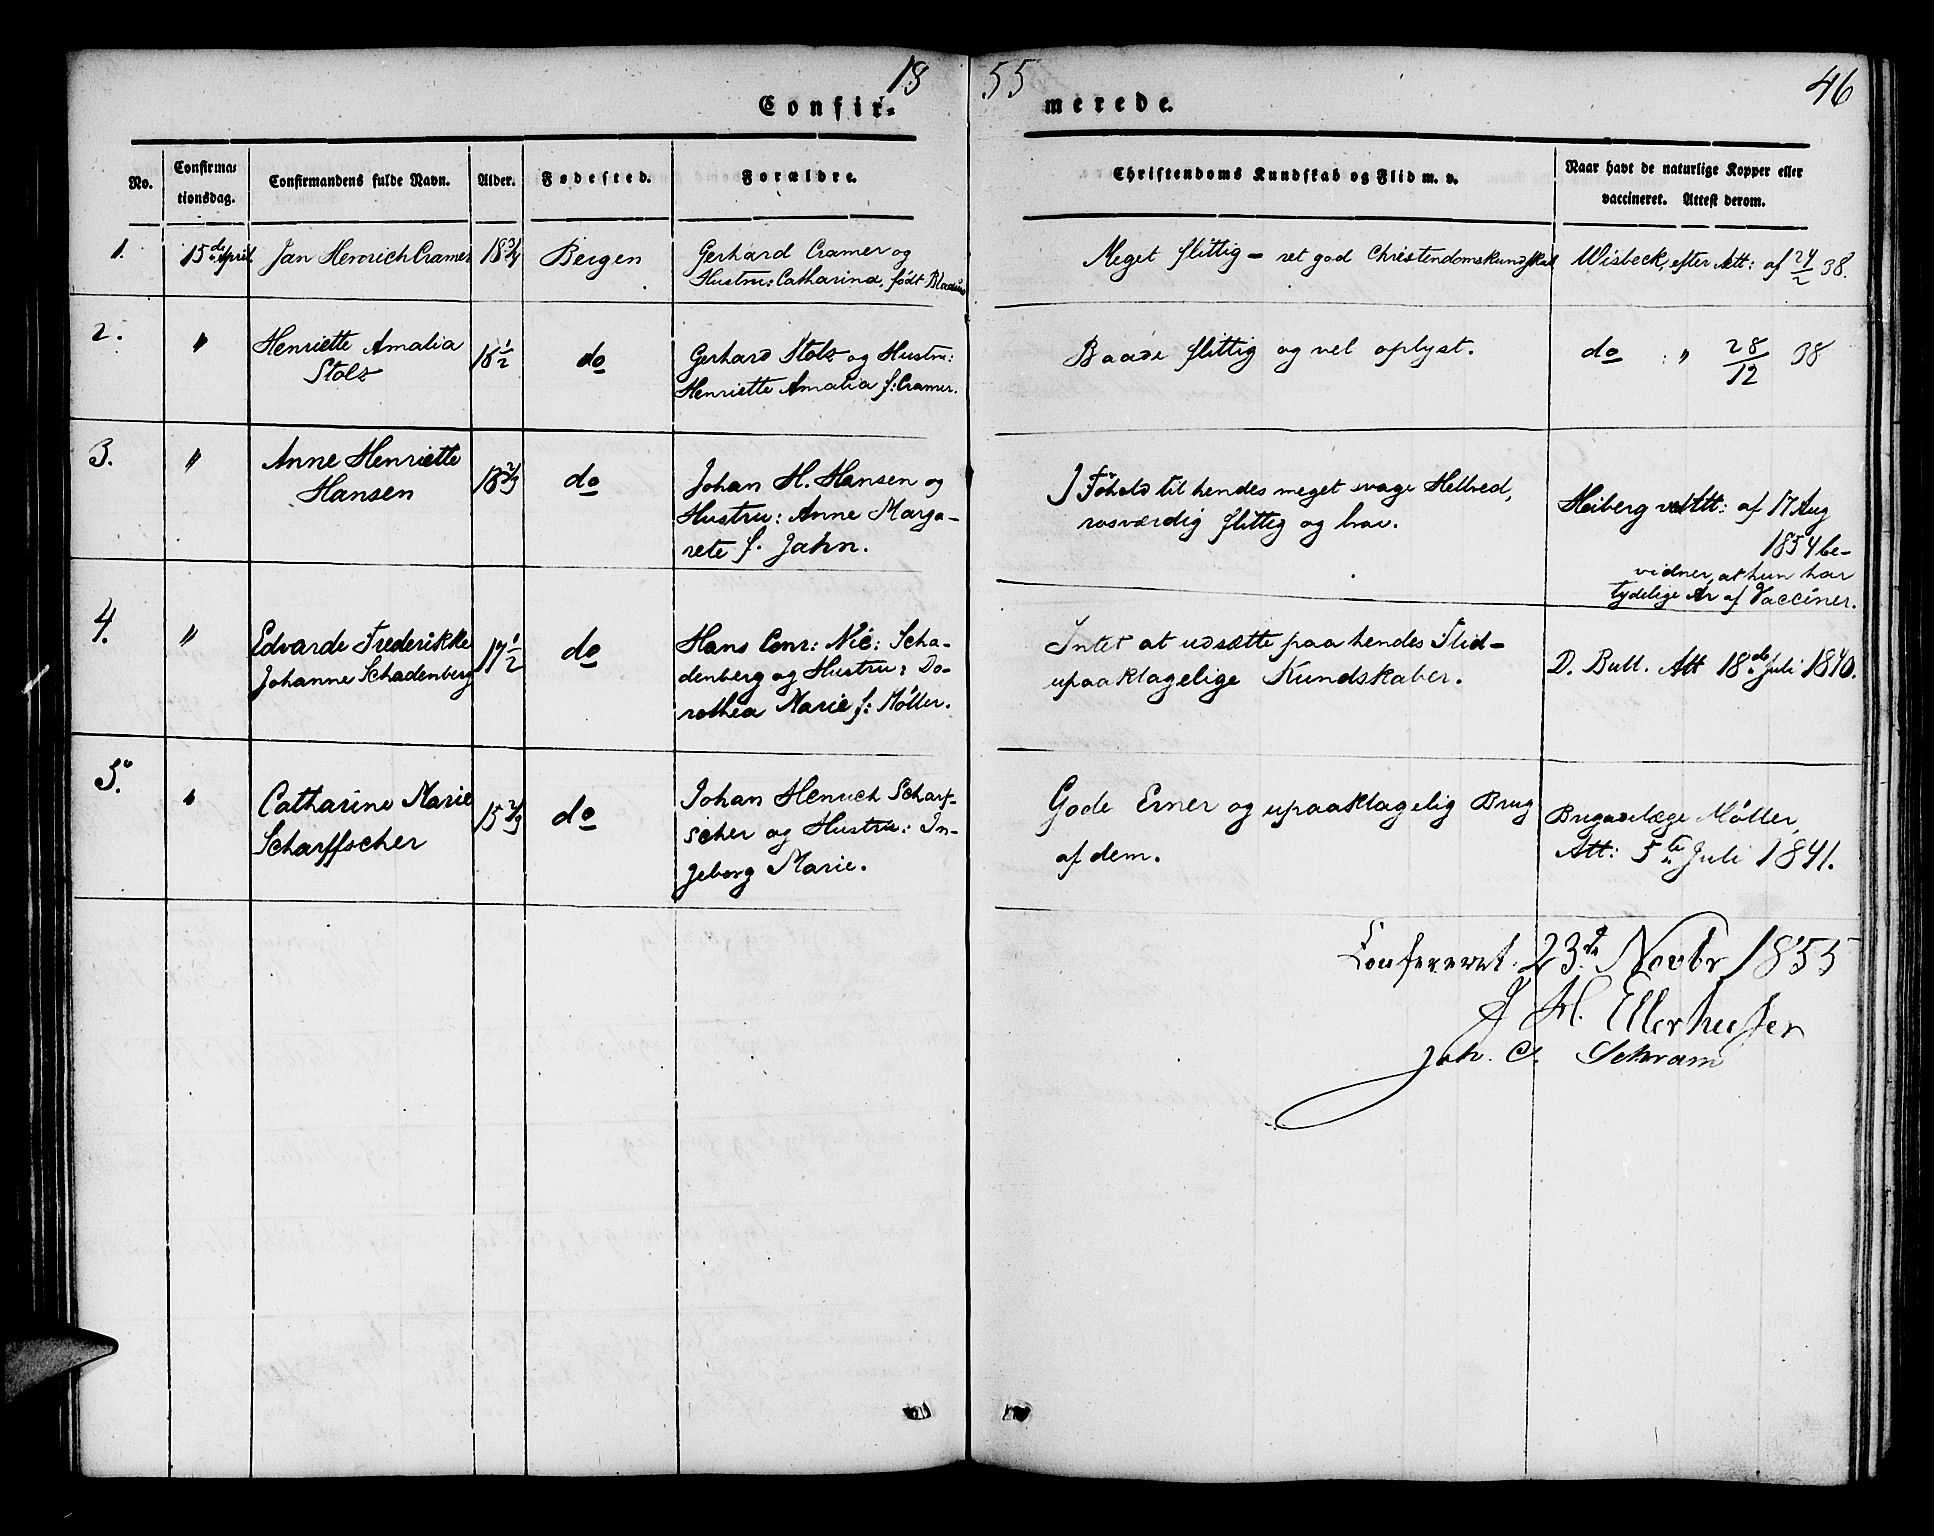 18 55 46
Confir- merede.
No. Confirma- Confirmandens fulde Navn. Alder. Fødested. Forældre. Christendoms Kundskab og Flid m. v. Naar havt de naturlige Kopper eller
tionsdag. vaccineret. Attest derom.
1. 15de April Jan Henrich Cramer 18 3/4 Bergen Gerhard Cramer og Meget flittig – ret god Christendomskundskab Wisbeck, efter Att: af 24/2 38.
Hustru: Catharina, født
2. " Henriette Amalia 18 1/2 do Gerhard Stolz og Hustru: Baade flittig og vel oplyst. do : " 28/12 38
Stolz Henriette Amalia f: Cramer.
3. " Anne Henriette 18 2/3 do Johan H. Hansen og I Fohold til hendes meget svage Helbred,
Hansen Hustru: Anne Marga- rosværdig flittig og brav. Heiberg ved Att: af 17 Aug
rete f. Jahn. 1854 be-
vidner, at hun har
tydelige Ar af Vacciner.
4. " Edvarde Frederikke 17 1/2 do Hans Conr: Nic: Scha- Intet at udsætte paa hendes Flid – D. Bull. Att 18de Juli 1840.
Johanne Schadenberg denberg og Hustru: Do- upaaklagelige Kundskaber.
rothea Marie f: Møller.
5. " Catharine Marie 15 2/3 do Johan Henrich Scharf- Gode Evner og upaaklagelig Brug Brigadelæge Møller,
Scharffscher scher og Hustru: In- af dem. Att: 5te Juli 1841.
geborg Marie.
Confereret. 23de Novbr 1855
J H. Ellerhusen
Joh. C. Schram